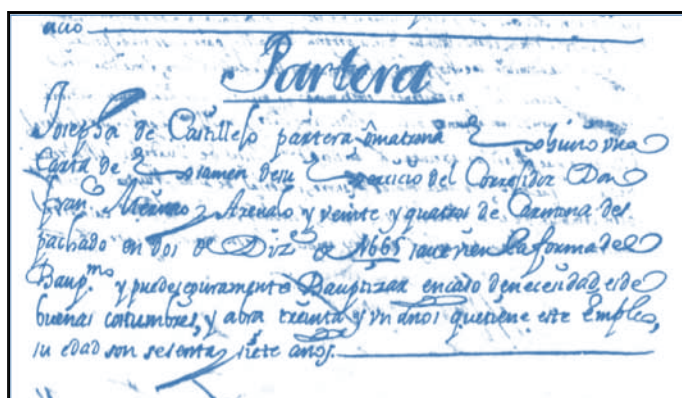 acio
Partera
Josepha de Castillejo partera ô matrona obtuvo una
Carta de exsamen de su exsercicio del Corregidor Don
Fran.co Arevalo y veinte y quatro de Carmona des
pachado en dos de Diz.e de 1665 save vien la forma del
Baup.mo y puede seguramente Bauptizar en caso de necesidad es de
buenas costumbres, y abra treinta y un años que tiene este Empleo,
su edad son sesenta y siete años.